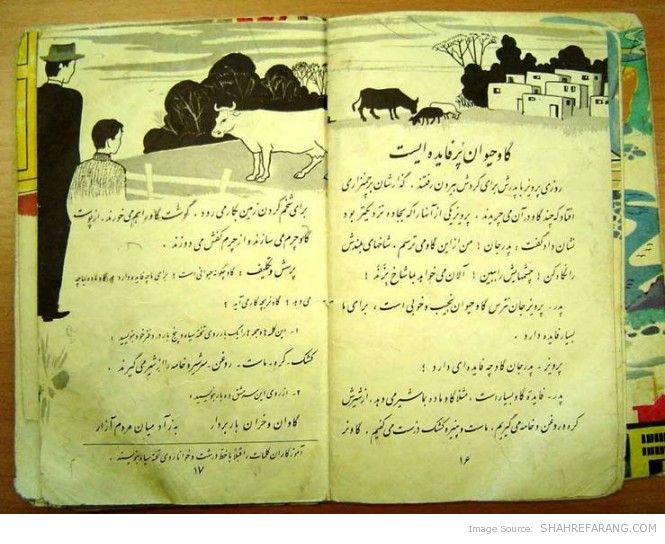 گاو حیوان پُر فایده ایست
روزی پرویز با پدرش برای گردش بیرون رفتند ، گذارشان به چمنزاری
افتاد که چند گاو در آن می چریدند . پرویز یکی از آنها را که بجاده نزدیکتر بود
نشان داد گفت : پدر جان ! من از این گاو می ترسم ، شاخهای بلندش
را نگاه کن ! چشمهایش را ببین ! الآن می خواهد با شاخ بزند !
پدر - پرویز جان نترس گاو حیوان نجیب و خوبی است ، برای ما
بسیار فایده دارد .
پرویز - پدر جان گاو چه فایده ای دارد ؟
پدر - فایدهٔ گاو بسیار است ، مثلاً گاو ماده بما شیر می دهد ، از شیرش
کره و روغن و خامه می گیریم ، ماست و پنیر و کشک درست می کنیم . گاو نر
۱۶
برای شخم کردن زمین بکار می رود . گوشت گاو را هم می خورند . از پوست
گاو چرم می سازند و از چرم کفش می دوزند .
پرسش و تکلیف : گاو چگونه حیوانی است ؟ برای ما چه فایده دارد ؟ گاو ماده بما چه
می دهد ؟ گاو نر بچه کار می آید ؟
۱- این کلمه ها و جمله ها را یک بار روی تختهٔ سیاه و پنج بار در دفتر خود بنویسید :
کشک - کره - ماست - روغن - سرشیر و خامه را از شیر می گیرند .
۲- از روی این سرمشق ده بار بنویسید :
گاوان و خران بار بردار به ز آدمیان مردم آزار
آموزگاران کلمات را قبلاً با خط درشت و خوانا روی تختهٔ سیاه بنویسند .
۱۷
Image Source: SHAHREFARANG.COM